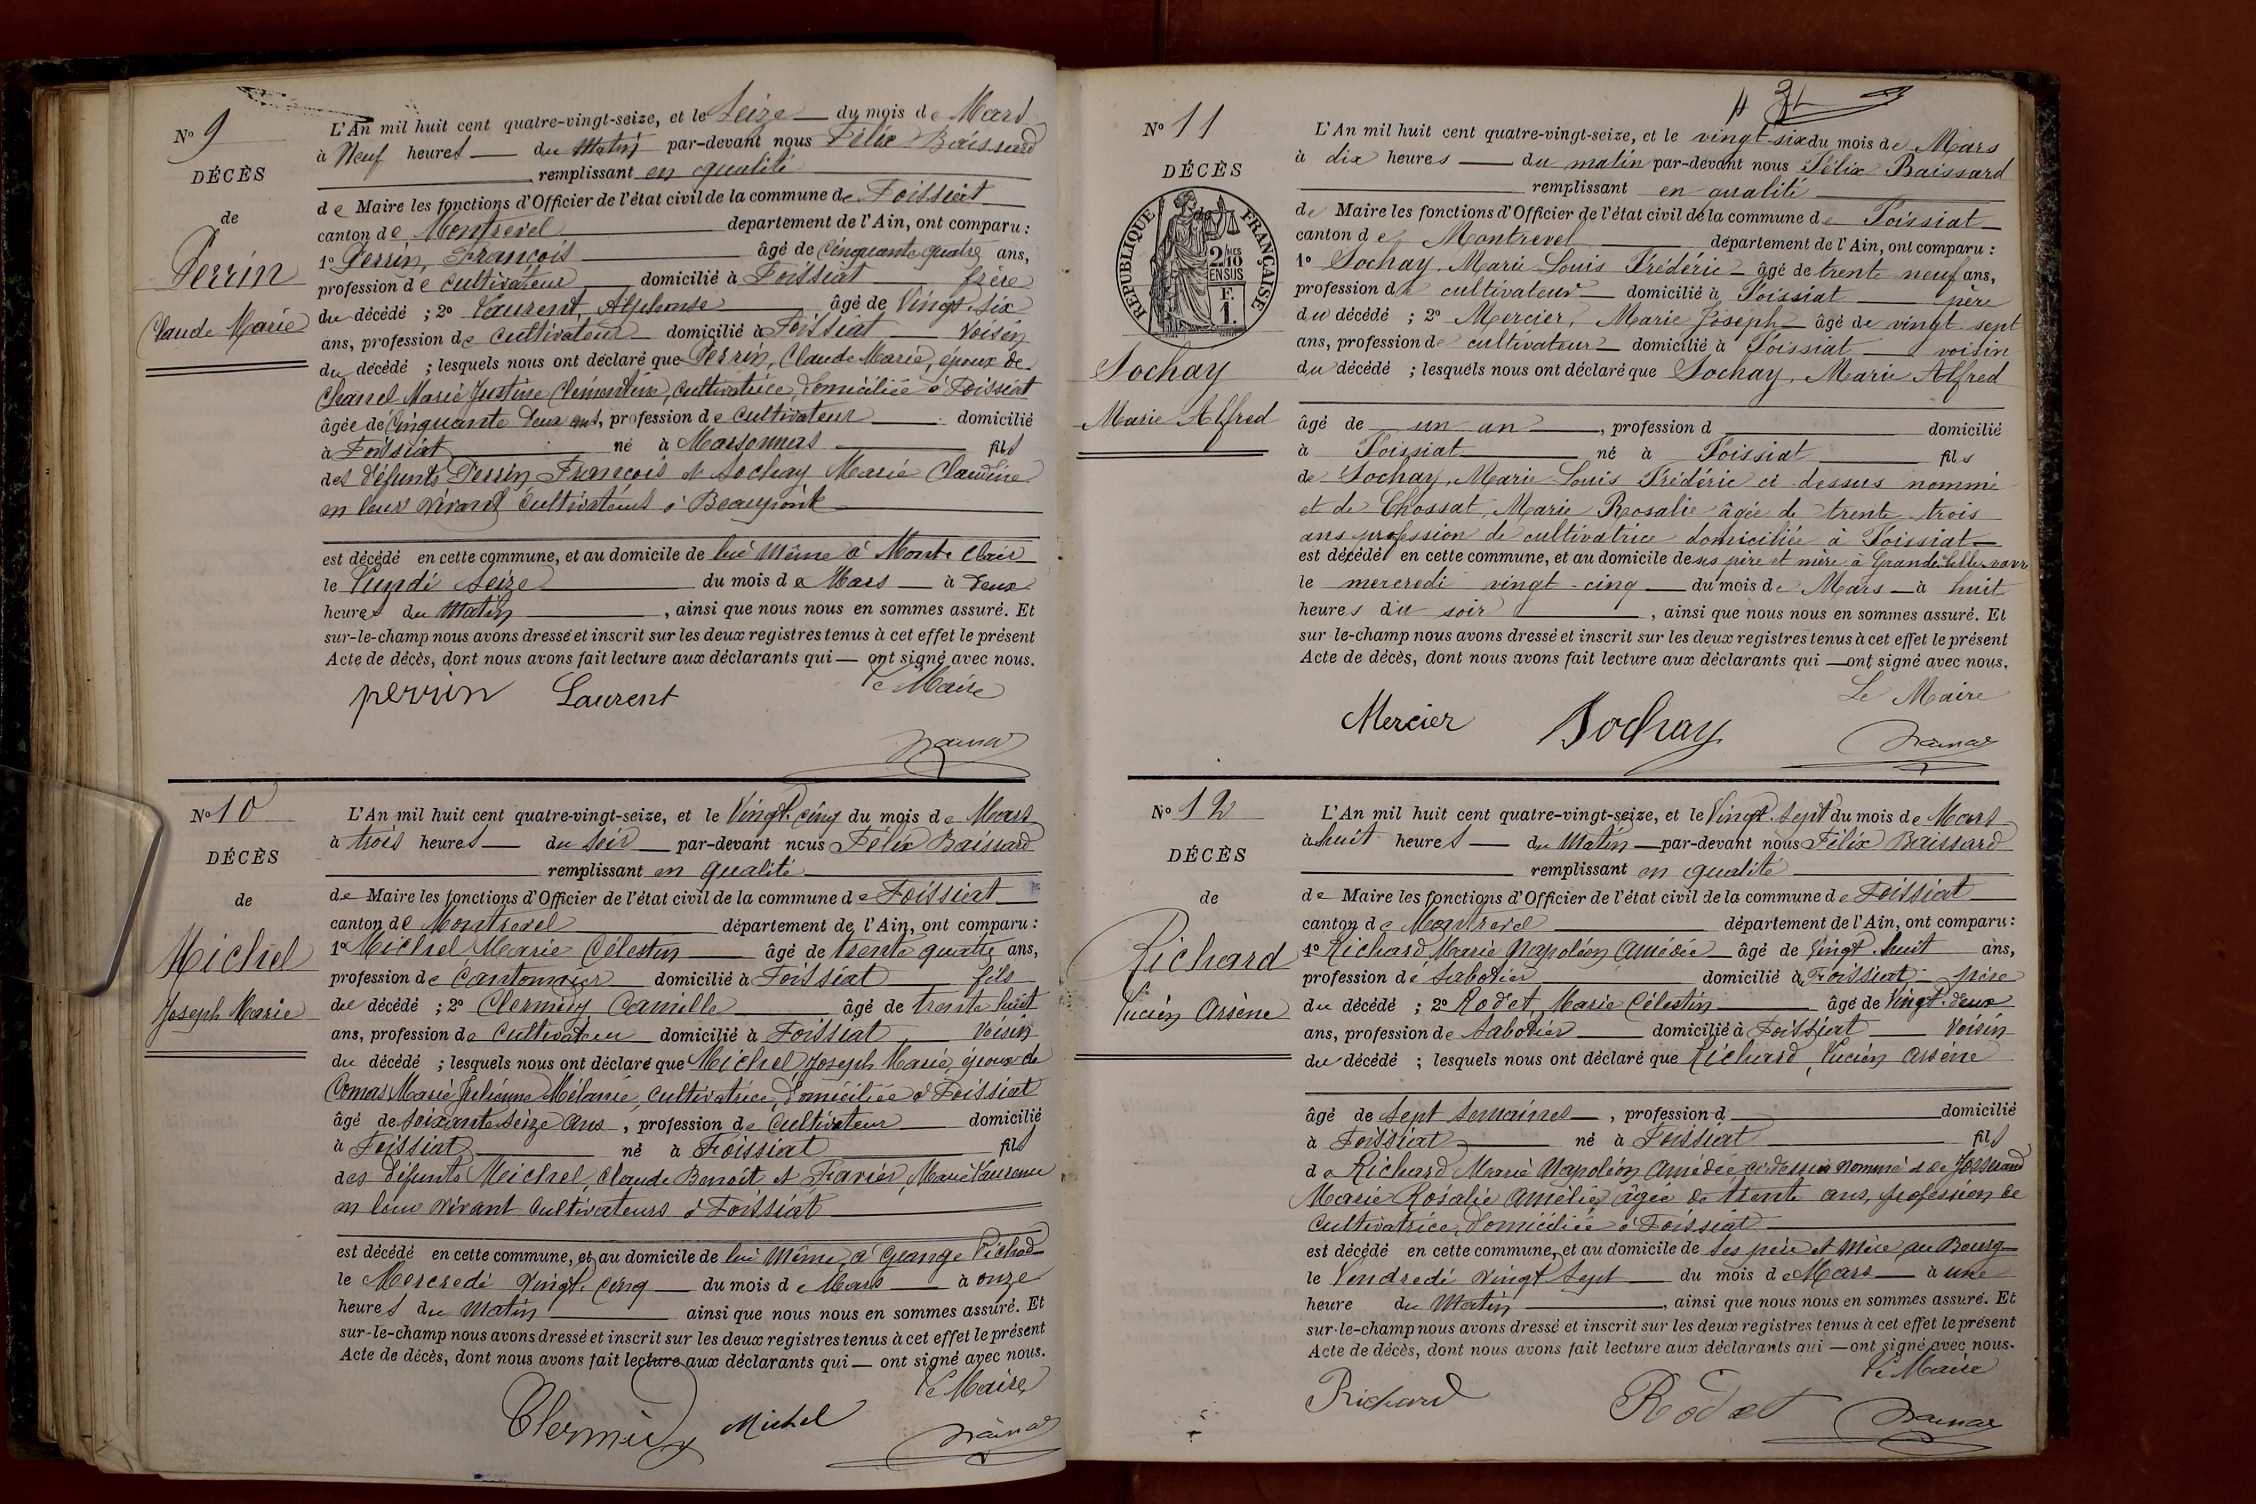 No 9
DÉCÈS
de
Perrin
Claude Marie
L'An mil huit cent quatre-vingt-seize, et le Seize du mois de Mars
à Neuf heures du matin par-devant nous Félix Baissard
remplissant en qualité
de Maire les fonctions d'Officier de l'état civil de la commune de Foissiat
canton de Montrevel departement de l'Ain, ont comparu :
1o Perrin, François âgé de cinquante quatre ans,
profession de cultivateur domicilié à Foissiat frère
du décédé ; 2o Laurent, Alphonse âgé de Vingt-six
ans, profession de cultivateur domicilié à Foissiat Voisin
du décédé ; lesquels nous ont déclaré que Perrin, Claude Marie, époux de
Marie Justine Clémentine, cultivatrice, domiciliée à Foissiat
âgée de Cinquante deux ans, profession de cultivateur domicilié
à Foissiat né à Marsonnas fils
des défunts Perrin François et Sochay Marie Claudine
en leur vivant cultivateurs à Beaupont
est décédé en cette commune, et au domicile de lui même à Mont Clair
le Lundi Seize du mois de Mars à Deux
heures du matin, ainsi que nous nous en sommes assuré. Et
sur-le-champ nous avons dressé et inscrit sur les deux registres tenus à cet effet le présent
Acte de décès, dont nous avons fait lecture aux déclarants qui — ont signé avec nous.
Le Maire
perrin Laurent
No 10
DÉCÈS
de
Michel
Joseph Marie
L'An mil huit cent quatre-vingt-seize, et le Vingt-cinq du mois de Mars
à trois heures du soir par-devant nous Félix Baissard
remplissant en qualité
de Maire les fonctions d'Officier de l'état civil de la commune de Foissiat
canton de Montrevel département de l'Ain, ont comparu :
1o Michel Marie Célestin âgé de trente quatre ans,
profession de Cantonnier domicilié à Foissiat fils
du décédé ; 2o Clermidy Camille âgé de trente huit
ans, profession de cultivateur domicilié à Foissiat Voisin
du décédé ; lesquels nous ont déclaré que Michel, Joseph Marie, époux de
Comas Marie Julienne Mélanie, cultivatrice, domiciliée à Foissiat
âgé de soixante seize ans, profession de cultivateur domicilié
à Foissiat né à Foissiat fils
des défunts Michel, Claude Benoît et Favier, Marie Laurence
en leur vivant cultivateurs à Foissiat
est décédé en cette commune, et au domicile de lui même, à Grange Pichod
le Mercredi vingt cinq du mois de Mars à onze
heures du matin ainsi que nous nous en sommes assuré. Et
sur-le-champ nous avons dressé et inscrit sur les deux registres tenus à cet effet le présent
Acte de décès, dont nous avons fait lecture aux déclarants qui — ont signé avec nous.
Le Maire
Clermidy Michel
No 11
DÉCÈS
RÉPUBLIQUE FRANÇAISE
2/10 EN SUS
F. 1.
Sochay
Marie Alfred
L'An mil huit cent quatre-vingt-seize, et le vingt-six du mois de Mars
à dix heures du matin par-devant nous Félix Baissard
remplissant en qualité
de Maire les fonctions d'Officier de l'état civil de la commune de Foissiat
canton de Montrevel département de l'Ain, ont comparu :
1o Sochay, Marie Louis Frédéric âgé de trente neuf ans,
profession de cultivateur domicilié à Foissiat père
du décédé ; 2o Mercier, Marie Joseph âgé de vingt sept
ans, profession de cultivateur domicilié à Foissiat voisin
du décédé ; lesquels nous ont déclaré que Sochay, Marie Alfred
âgé de un an, profession d domicilié
à Foissiat né à Foissiat fils
de Sochay, Marie Louis Frédéric ci dessus nommé
et de Chossat Marie Rosalie âgée de trente trois
ans profession de cultivatrice domiciliée à Foissiat
est décédé en cette commune, et au domicile de ses père et mère à Grande
le mercredi vingt-cinq du mois de Mars à huit
heures du soir, ainsi que nous nous en sommes assuré. Et
sur-le-champ nous avons dressé et inscrit sur les deux registres tenus à cet effet le présent
Acte de décès, dont nous avons fait lecture aux déclarants qui — ont signé avec nous.
Le Maire
Mercier Sochay
No 12
DÉCÈS
de
Richard
Lucien Arsène
L'An mil huit cent quatre-vingt-seize, et le Vingt Sept du mois de Mars
à huit heures du Matin par-devant nous Félix Baissard
remplissant en qualité
de Maire les fonctions d'Officier de l'état civil de la commune de Foissiat
canton de Montrevel département de l'Ain, ont comparu :
1o Richard Marie Napoléon Amédée âgé de Vingt huit ans,
profession de Sabotier domicilié à Foissiat père
du décédé ; 2o Rodet, Marie Célestin âgé de Vingt-deux
ans, profession de Sabotier domicilié à Foissiat Voisin
du décédé ; lesquels nous ont déclaré que Richard, Lucien Arsène
âgé de Sept Semaines, profession d domicilié
à Foissiat né à Foissiat fils
de Richard Marie Napoléon Amédée ci dessus nommé et de Josserand
Marie Rosalie Amélie, âgée de trente ans, profession de
Cultivatrice, domiciliée à Foissiat
est décédé en cette commune, et au domicile de Ses père et Mère, au Bourg
le Vendredi vingt Sept du mois de Mars à une
heure du Matin, ainsi que nous nous en sommes assuré. Et
sur-le-champ nous avons dressé et inscrit sur les deux registres tenus à cet effet le présent
Acte de décès, dont nous avons fait lecture aux déclarants qui — ont signé avec nous.
Le Maire
Richard Rodet